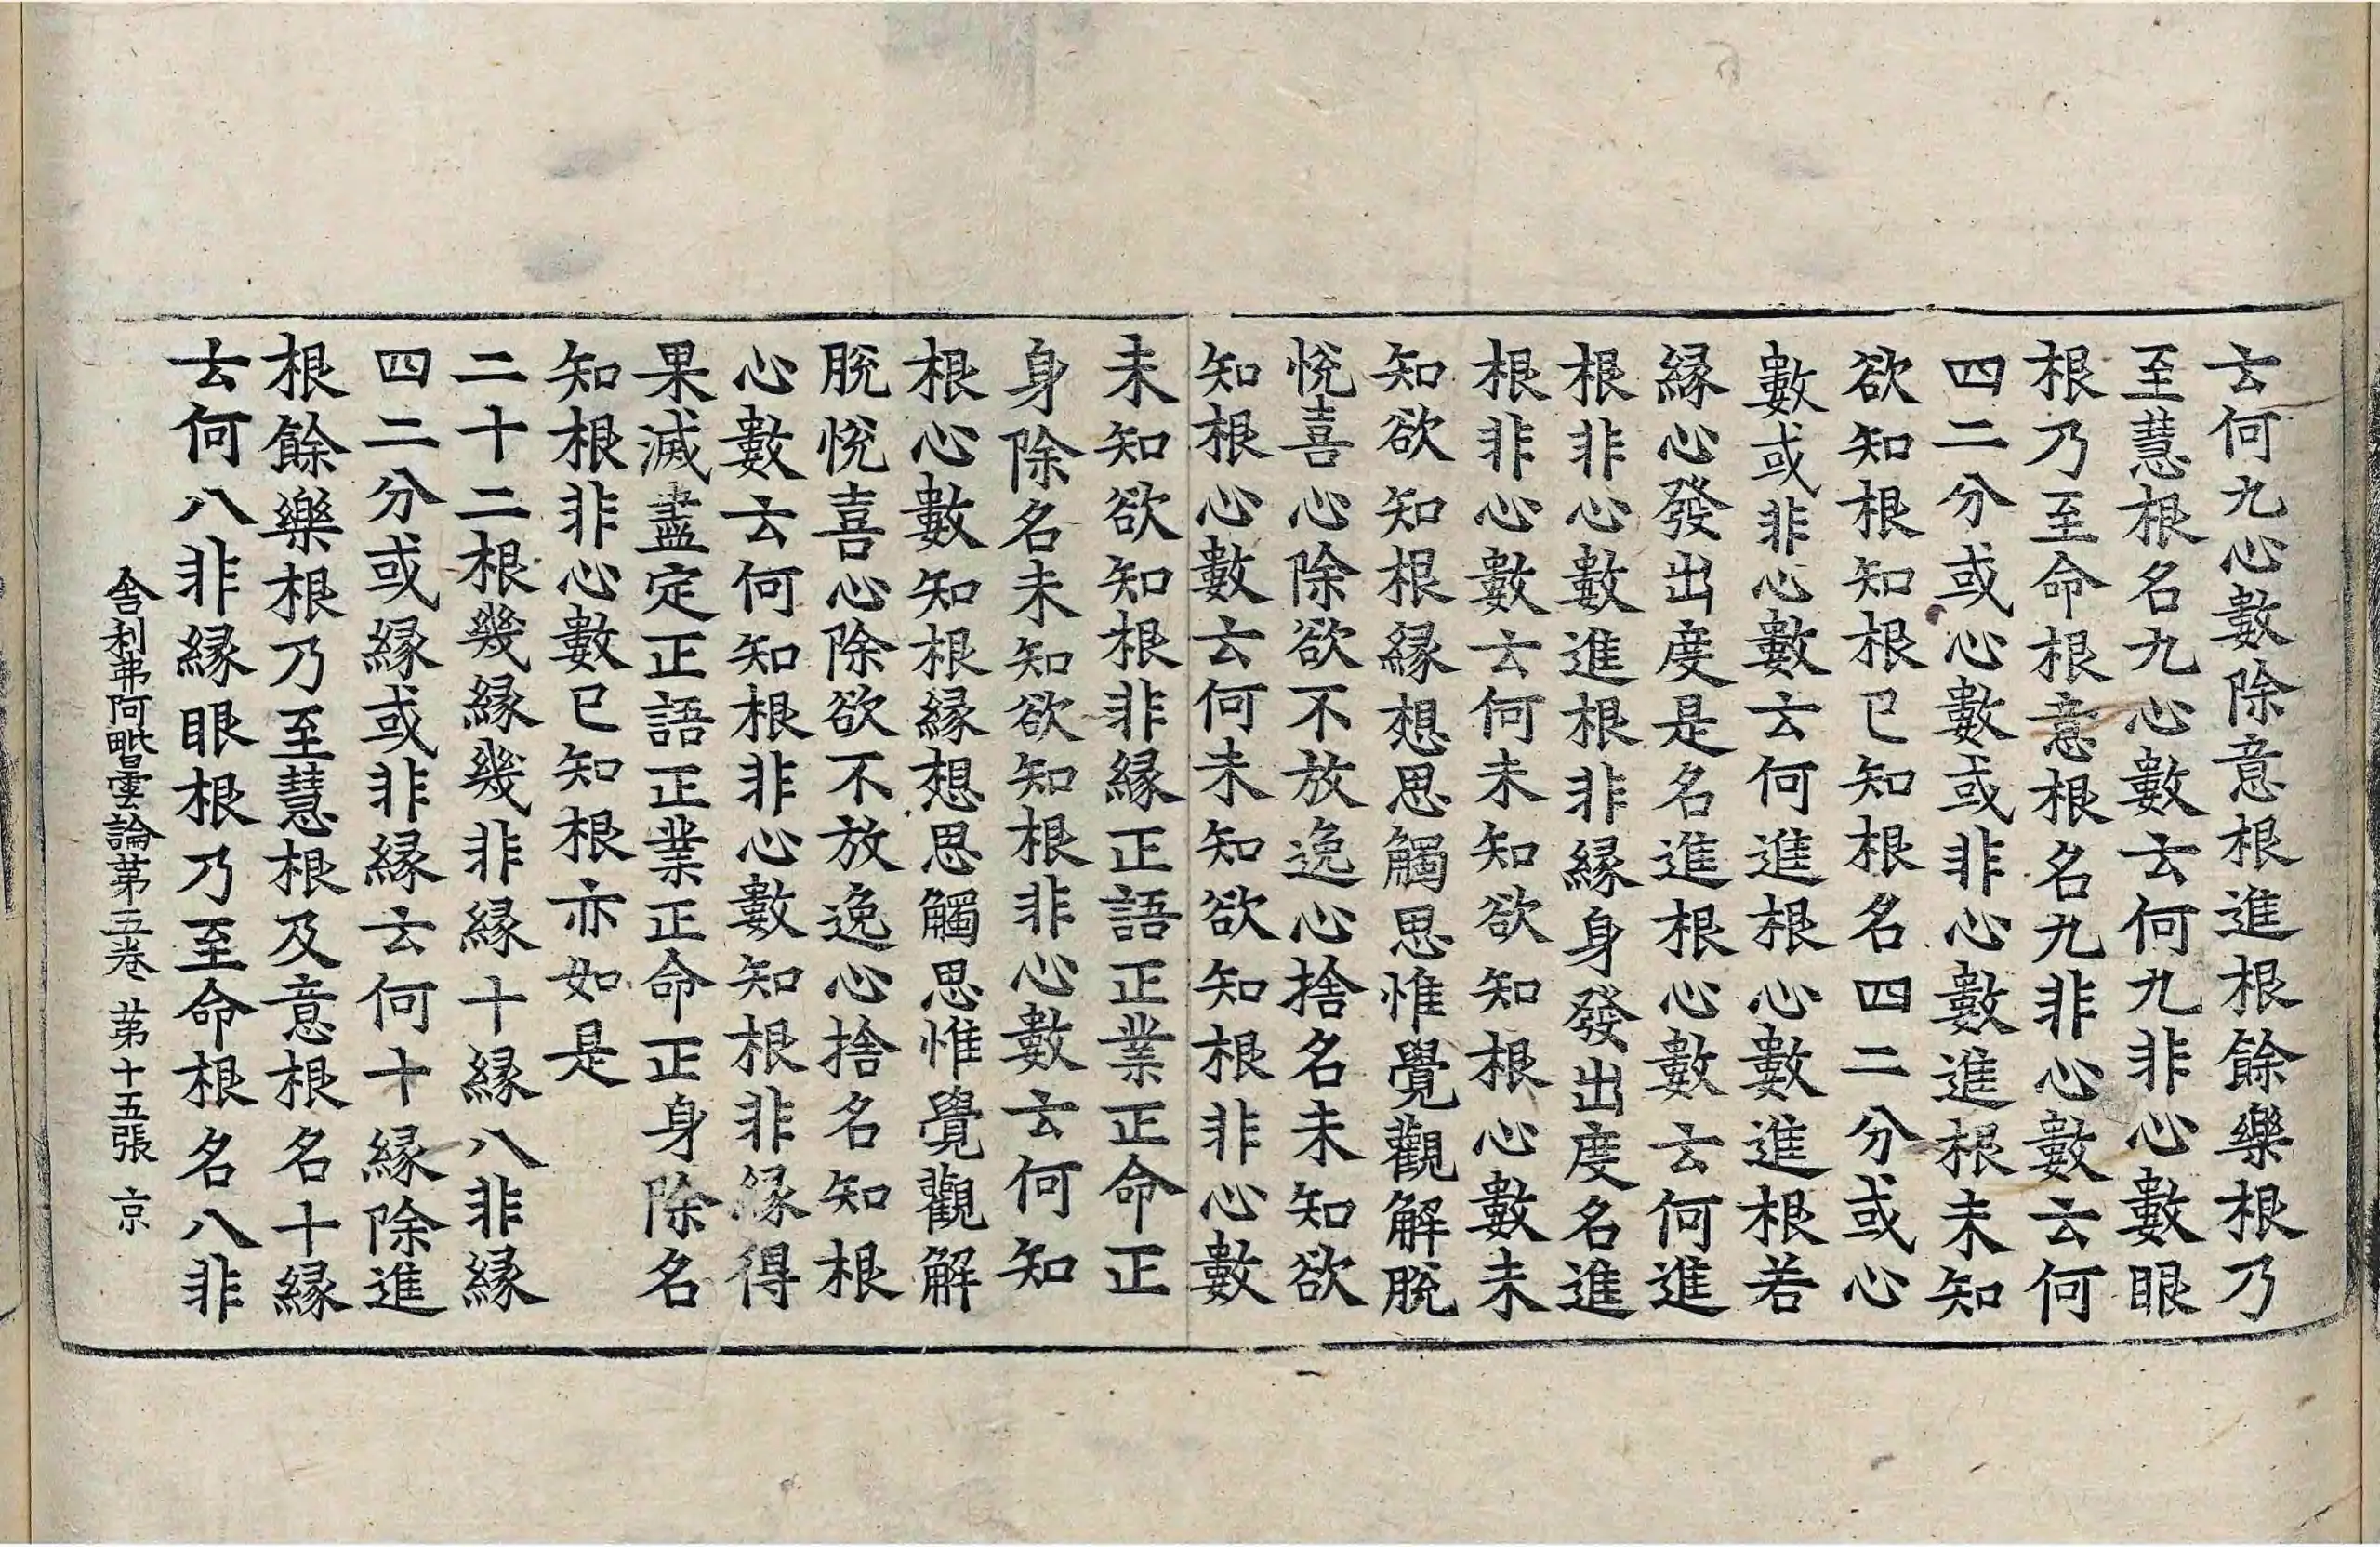 云何九心數除意根進根餘樂根乃
至慧根名九心數云何九非心數眼
根乃至命根意根名九非心數云何
四二分或心數或非心數進根未知
欲知根知根已知根名四二分或心
數或非心數云何進根心數進根若
緣心發出度是名進根心數云何進
根非心數進根非緣身發出度名進
根非心數云何未知欲知根心數未
知欲知根緣想思觸思惟覺觀解脫
悅喜心除欲不放逸心捨名未知欲
知根心數云何未知欲知根非心數
未知欲知根非緣正語正業正命正
身除名未知欲知根非心數云何知
根心數知根緣想思觸思惟覺觀解
脫悅喜心除欲不放逸心捨名知根
心數云何知根非心數知根非緣得
果滅盡定正語正業正命正身除名
知根非心數已知根亦如是
二十二根幾緣幾非緣十緣八非緣
四二分或緣或非緣云何十緣除進
根餘樂根乃至慧根及意根名十緣
云何八非緣眼根乃至命根名八非
舍利弗阿毗曇論苐五卷 苐十五張 京